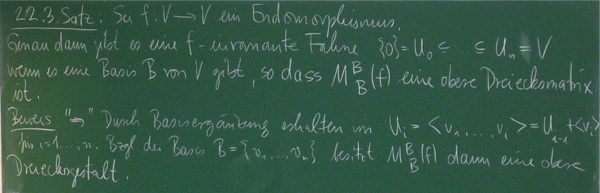 22.3. Satz: Sei f: V → V ein Endomorphismus.
Genau dann gibt es eine f-invariante Fahne {0} = U₀ ⊆ … ⊆ Uₙ = V
wenn es eine Basis B von V gibt, so dass M^B_B(f) eine obere Dreiecksmatrix
ist.
Beweis "⇒" Durch Basisergänzung erhalten wir Uᵢ = <v₁, …, vᵢ> = Uᵢ₋₁ + <vᵢ>
für i=1,…,n. Bzgl. der Basis B = {v₁…vₙ} besitzt M^B_B(f) dann eine obere
Dreiecksgestalt.